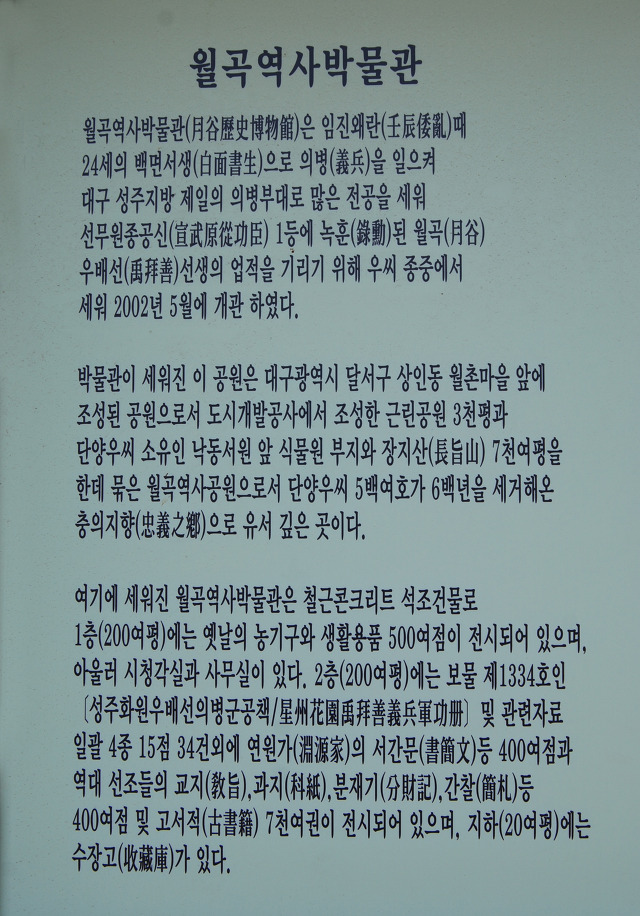 월곡역사박물관
월곡역사박물관(月谷歷史博物館)은 임진왜란(壬辰倭亂)때
24세의 백면서생(白面書生)으로 의병(義兵)을 일으켜
대구 성주지방 제일의 의병부대로 많은 전공을 세워
선무원종공신(宣武原從功臣) 1등에 녹훈(錄勳)된 월곡(月谷)
우배선(禹拜善)선생의 업적을 기리기 위해 우씨 종중에서
세워 2002년 5월에 개관 하였다.
박물관이 세워진 이 공원은 대구광역시 달서구 상인동 월촌마을 앞에
조성된 공원으로서 도시개발공사에서 조성한 근린공원 3천평과
단양우씨 소유인 낙동서원 앞 식물원 부지와 장지산(長旨山) 7천여평을
한데 묶은 월곡역사공원으로서 단양우씨 5백여호가 6백년을 세거해온
충의지향(忠義之鄕)으로 유서 깊은 곳이다.
여기에 세워진 월곡역사박물관은 철근콘크리트 석조건물로
1층(200여평)에는 옛날의 농기구와 생활용품 500여점이 전시되어 있으며,
아울러 시청각실과 사무실이 있다. 2층(200여평)에는 보물 제1334호인
〔성주화원우배선의병군공책/星州花園禹拜善義兵軍功册〕 및 관련자료
일괄 4종 15점 34건외에 연원가(淵源家)의 서간문(書簡文)등 400여점과
역대 선조들의 교지(敎旨),과지(科紙),분재기(分財記),간찰(簡札)등
400여점 및 고서적(古書籍) 7천여권이 전시되어 있으며, 지하(20여평)에는
수장고(收藏庫)가 있다.